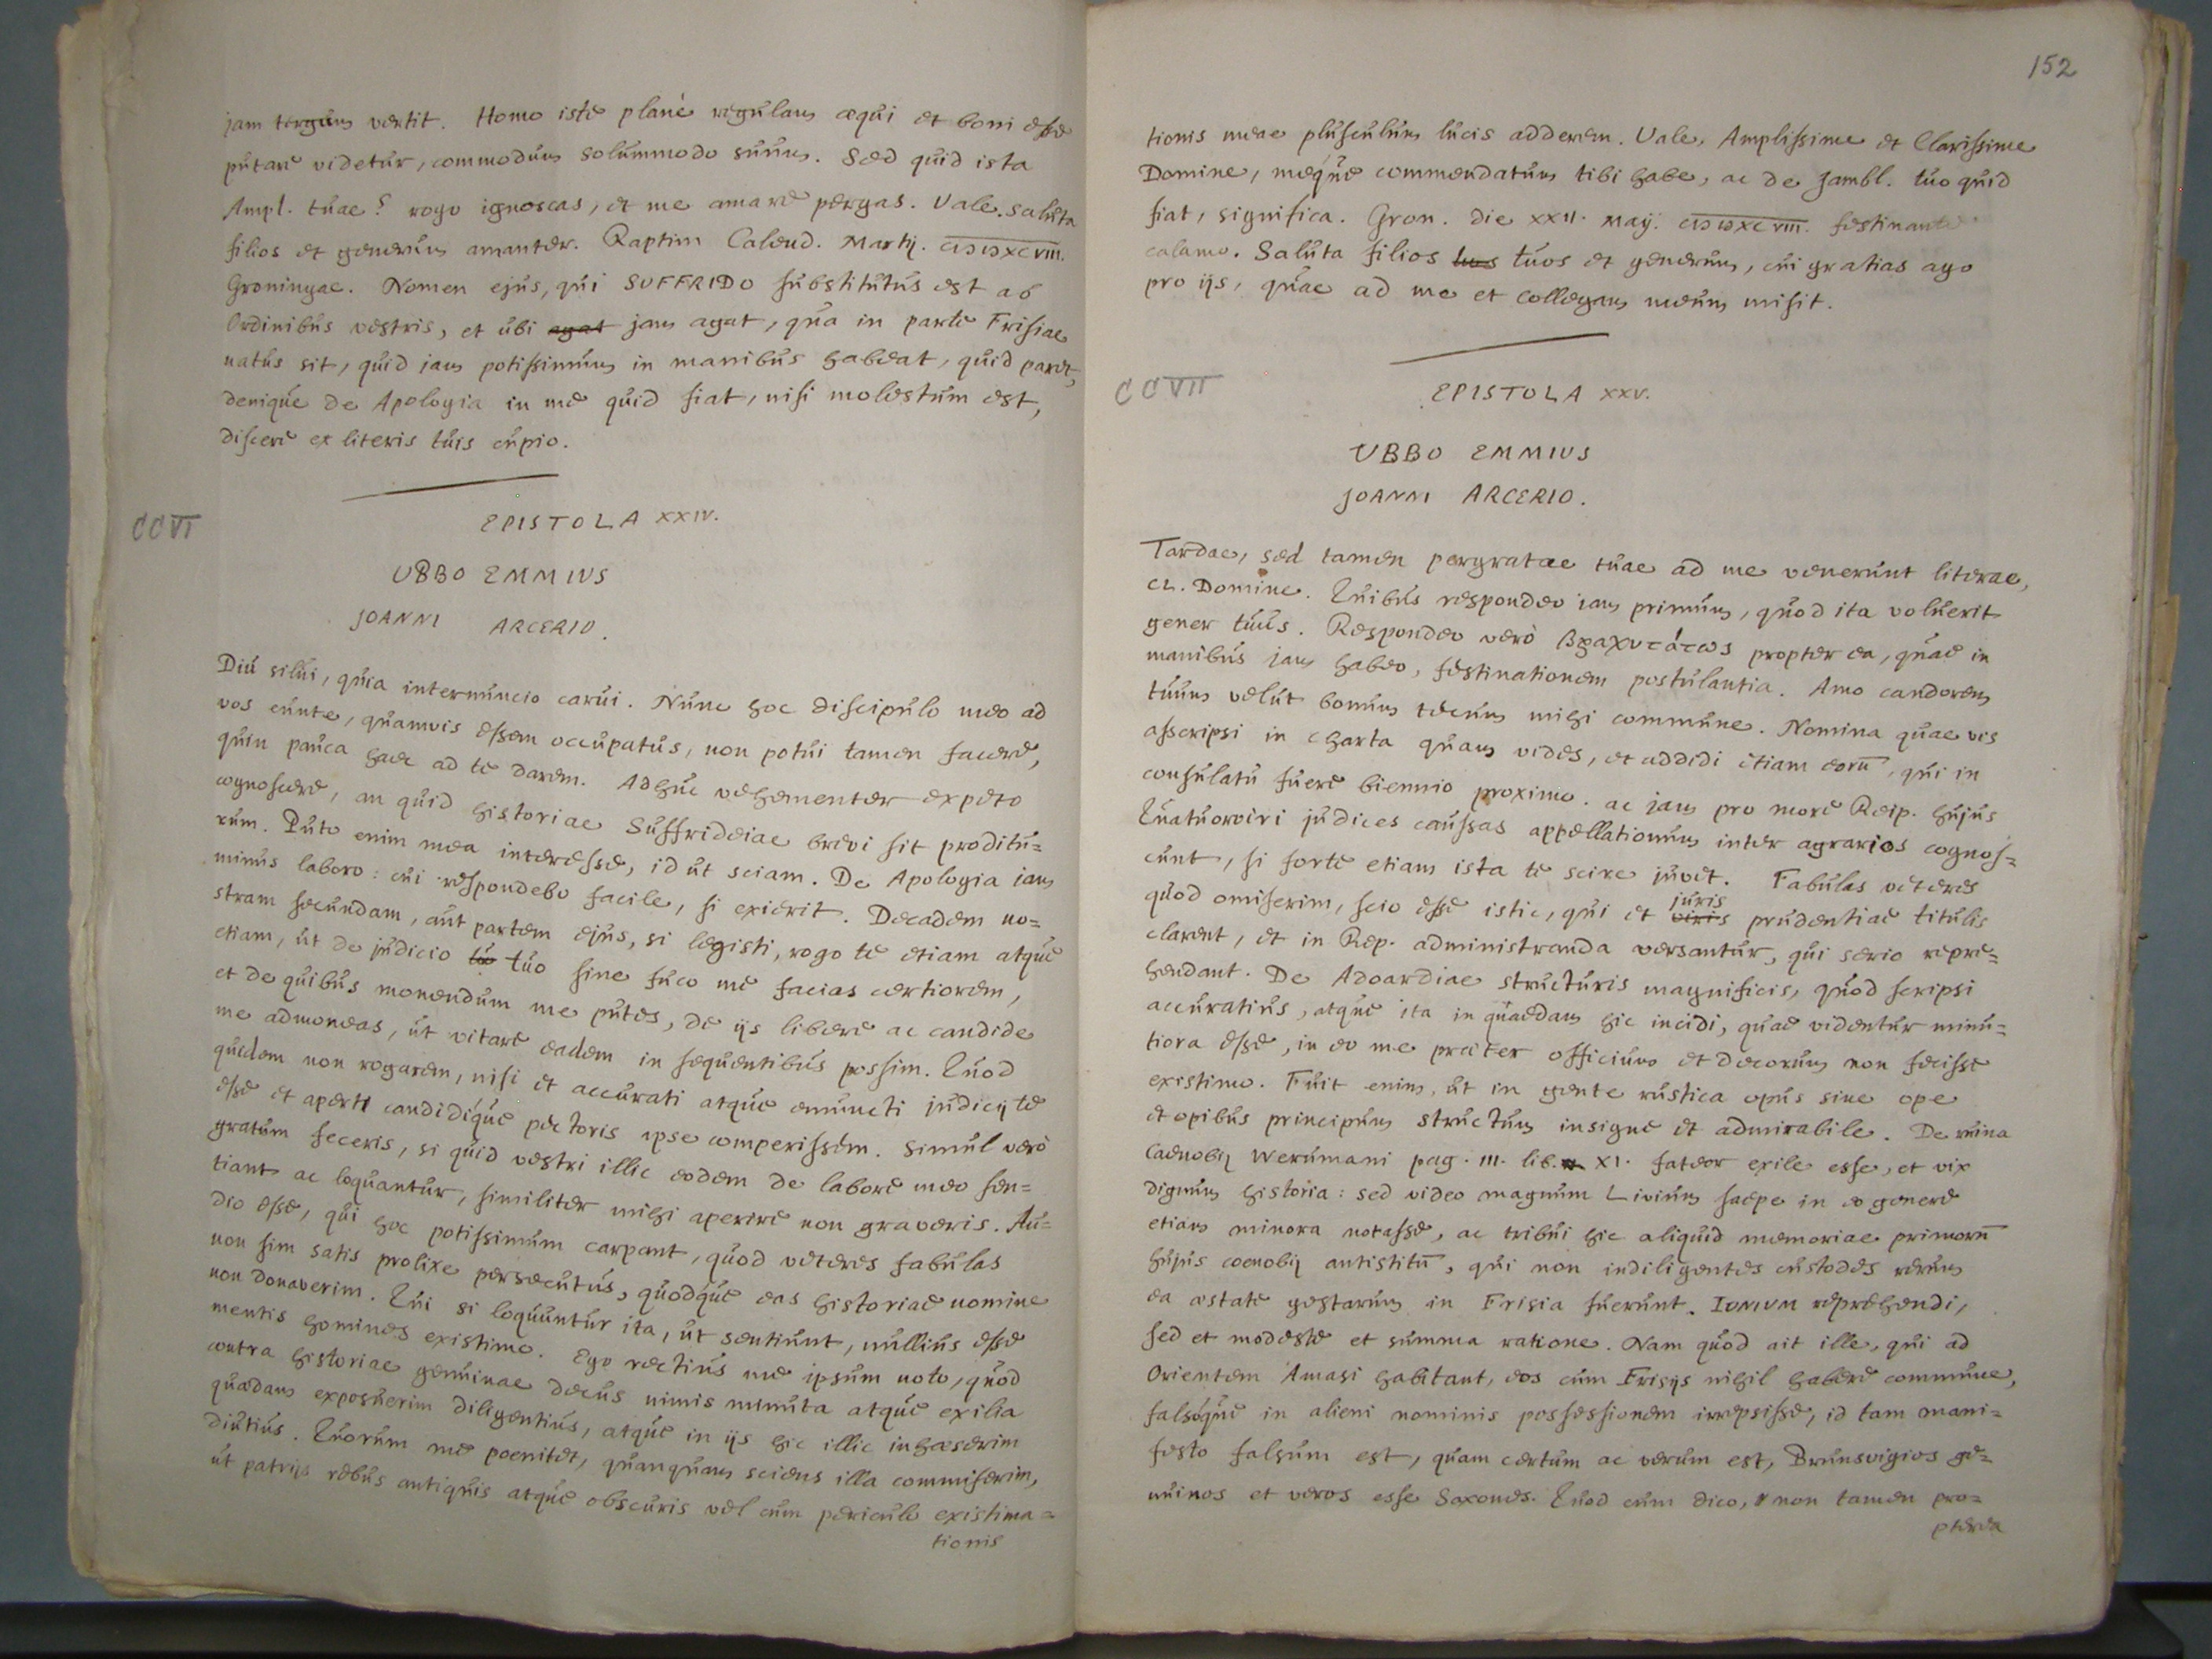 jam tergum vertit. Homo iste planè regulam æqui et boni esse
putare videtur, commodum solummodo suum. Sed quid ista
Ampl. tuae? rogo ignoscas, et me amare pergas. Vale. saluta
filios et generum amanter. Raptim Calend. Martij. CIƆIƆXCVIII.
Groningae. Nomen ejus, qui SUFFRIDO substitutus est ab
Ordinibus vestris, et ubi agat jam agat, qua in parte Frisiae
natus sit, quid jam potissimum in manibus habeat, quid paret,
denique de Apologia in me quid fiat, nisi molestum est,
discere ex literis tuis cupio.
CCVI
EPISTOLA XXIV.
UBBO EMMIUS
JOANNI ARCERIO.
Diu silui, quia internuncio carui. Nunc hoc discipulo meo ad
vos eunte, quamvis essem occupatus, non potui tamen facere,
quin pauca haec ad te darem. Adhuc vehementer expeto
cognoscere, an quid historiae Suffrideiae brevi sit proditu=
rum. Puto enim mea interesse, id ut sciam. De Apologia jam
minus laboro: cui respondebo facile, si exierit. Decadem no=
stram secundam, aut partem ejus, si legisti, rogo te etiam atque
etiam, ut de judicio tuo tuo sine fuco me facias certiorem,
et de quibus monendum me putes, de ijs libere ac candide
me admoneas, ut vitare eadem in sequentibus possim. Quod
quidem non rogarem, nisi et accurati atque emuncti judicij te
esse et aperti candidique pectoris ipse comperissem. Simul verò
gratum feceris, si quid vestri illic eodem de labore meo sen=
tiant ac loquantur, similiter mihi aperire non graveris. Au=
dio esse, qui hoc potissimum carpant, quod veteres fabulas
non sim satis prolixe persecutus, quodque eas historiae nomine
non donaverim. Qui si loquuntur ita, ut sentiunt, nullius esse
mentis homines existimo. Ego rectius me ipsum noto, quod
contra historiae genuinae decus nimis minuta atque exilia
quædam exposuerim diligentius, atque in ijs hic illic inhæserim
diutius. Quorum me poenitet, quanquam sciens illa commiserim,
ut patrijs rebus antiquis atque obscuris vel cum periculo existima=
tionis
152
tionis meae plusculum lucis adderem. Vale, Amplissime et Clarissime
Domine, meque commendatum tibi habe, ac de Jambl. tuo quid
fiat, significa. Gron. die XXII. Maij. CIƆIƆXCVIII. festinante
calamo. Saluta filios tuos tuos et generum, cui gratias ago
pro ijs, quae ad me et collegam meum misit.
CCVII
EPISTOLA XXV.
UBBO EMMIUS
JOANNI ARCERIO.
Tardae, sed tamen pergratae tuae ad me venerunt literae,
Cl. Domine. Quibus respondeo jam primum, quod ita voluerit
gener tuus. Respondeo verò βραχυτάτως propter ea, quae in
manibus jam habeo, festinationem postulantia. Amo candorem
tuum velut bonum tecum mihi commune. Nomina quae vis
asscripsi in charta quam vides, et addidi etiam eorū, qui in
consulatu fuere biennio proximo. ac jam pro more Reip. hujus
Quatuorviri judices caussas appellationum inter agrarios cognos=
cunt, si forte etiam ista te scire juvet. Fabulas veteres
quod omiserim, scio esse istic, qui et viris juris prudentiae titulis
clarent, et in Rep. administranda versantur, qui serio repre=
hendant. De Adoardiae structuris magnificis, quod scripsi
accuratius, atque ita in quaedam hic incidi, quae videntur minu=
tiora esse, in eo me præter officium et decorum non fecisse
existimo. Fuit enim, ut in gente rustica opus sine ope
et opibus principum structum insigne et admirabile. De ruina
Caenobij Werumani pag. III. lib. XI. fateor exile esse, et vix
dignum historia: sed video magnum Livium saepe in eo genere
etiam minora notasse, ac tribui hic aliquid memoriae primorū
hujus coenobij antistitū, qui non indiligentes custodes rerum
ea aestate gestarum in Frisia fuerunt. IUNIUM reprehendi,
sed et modeste et summa ratione. Nam quod ait ille, qui ad
Orientem Amasi habitant, eos cum Frisijs nihil habere commune,
falsòque in alieni nominis possessionem irrepsisse, id tam mani=
festo falsum est, quam certum ac verum est, Brunsvigios ge=
nuinos et veros esse Saxones. Quod cum dico, non tamen pro=
pterea